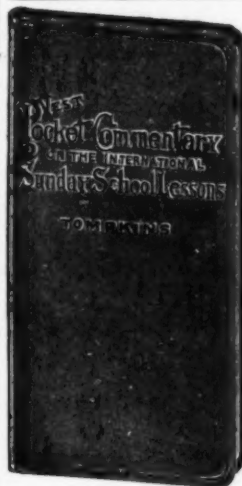 VEST
Pocket Commentary
ON THE INTERNATIONAL
Sunday School Lessons
TOMPKINS